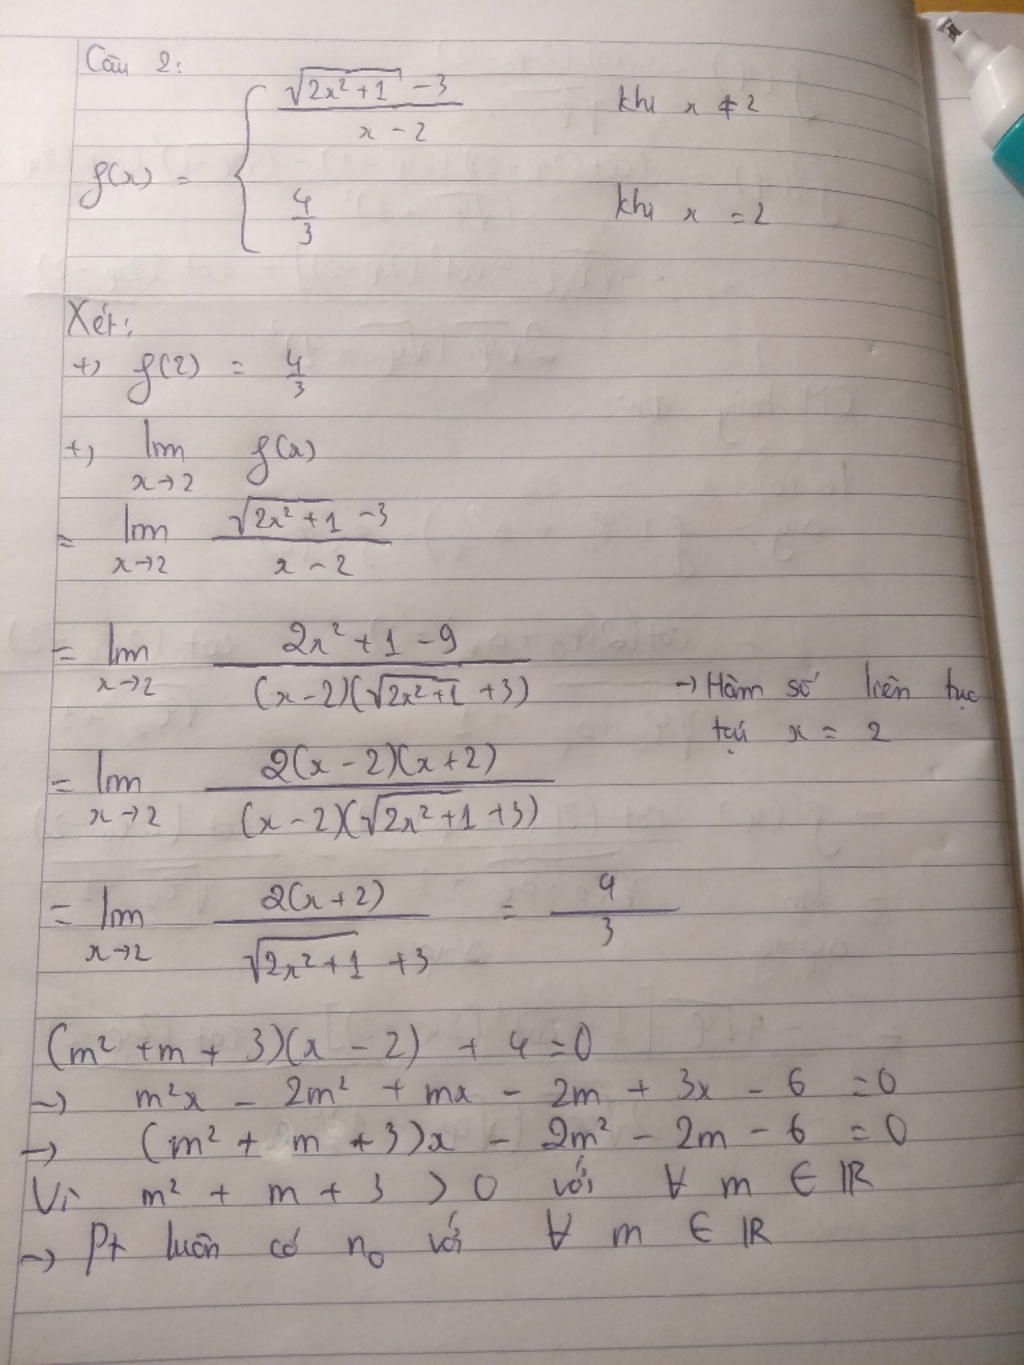 Câu 2:
f(x) = { (√(2x² + 1) - 3) / (x - 2) khi x ≠ 2
4/3 khi x = 2
Xét:
+) f(2) = 4/3
+) lim x→2 f(x)
= lim x→2 (√(2x² + 1) - 3) / (x - 2)
= lim x→2 (2x² + 1 - 9) / ((x - 2)(√(2x² + 1) + 3))
→ Hàm số liên tục
tại x = 2
= lim x→2 2(x - 2)(x + 2) / ((x - 2)(√(2x² + 1) + 3))
= lim x→2 2(x + 2) / (√(2x² + 1) + 3) = 4/3
(m² + m + 3)(x - 2) + 4 = 0
→ m²x - 2m² + mx - 2m + 3x - 6 = 0
→ (m² + m + 3)x - 2m² - 2m - 6 = 0
Vì m² + m + 3 > 0 với ∀ m ∈ ℝ
→ Pt luôn có n₀ với ∀ m ∈ ℝ